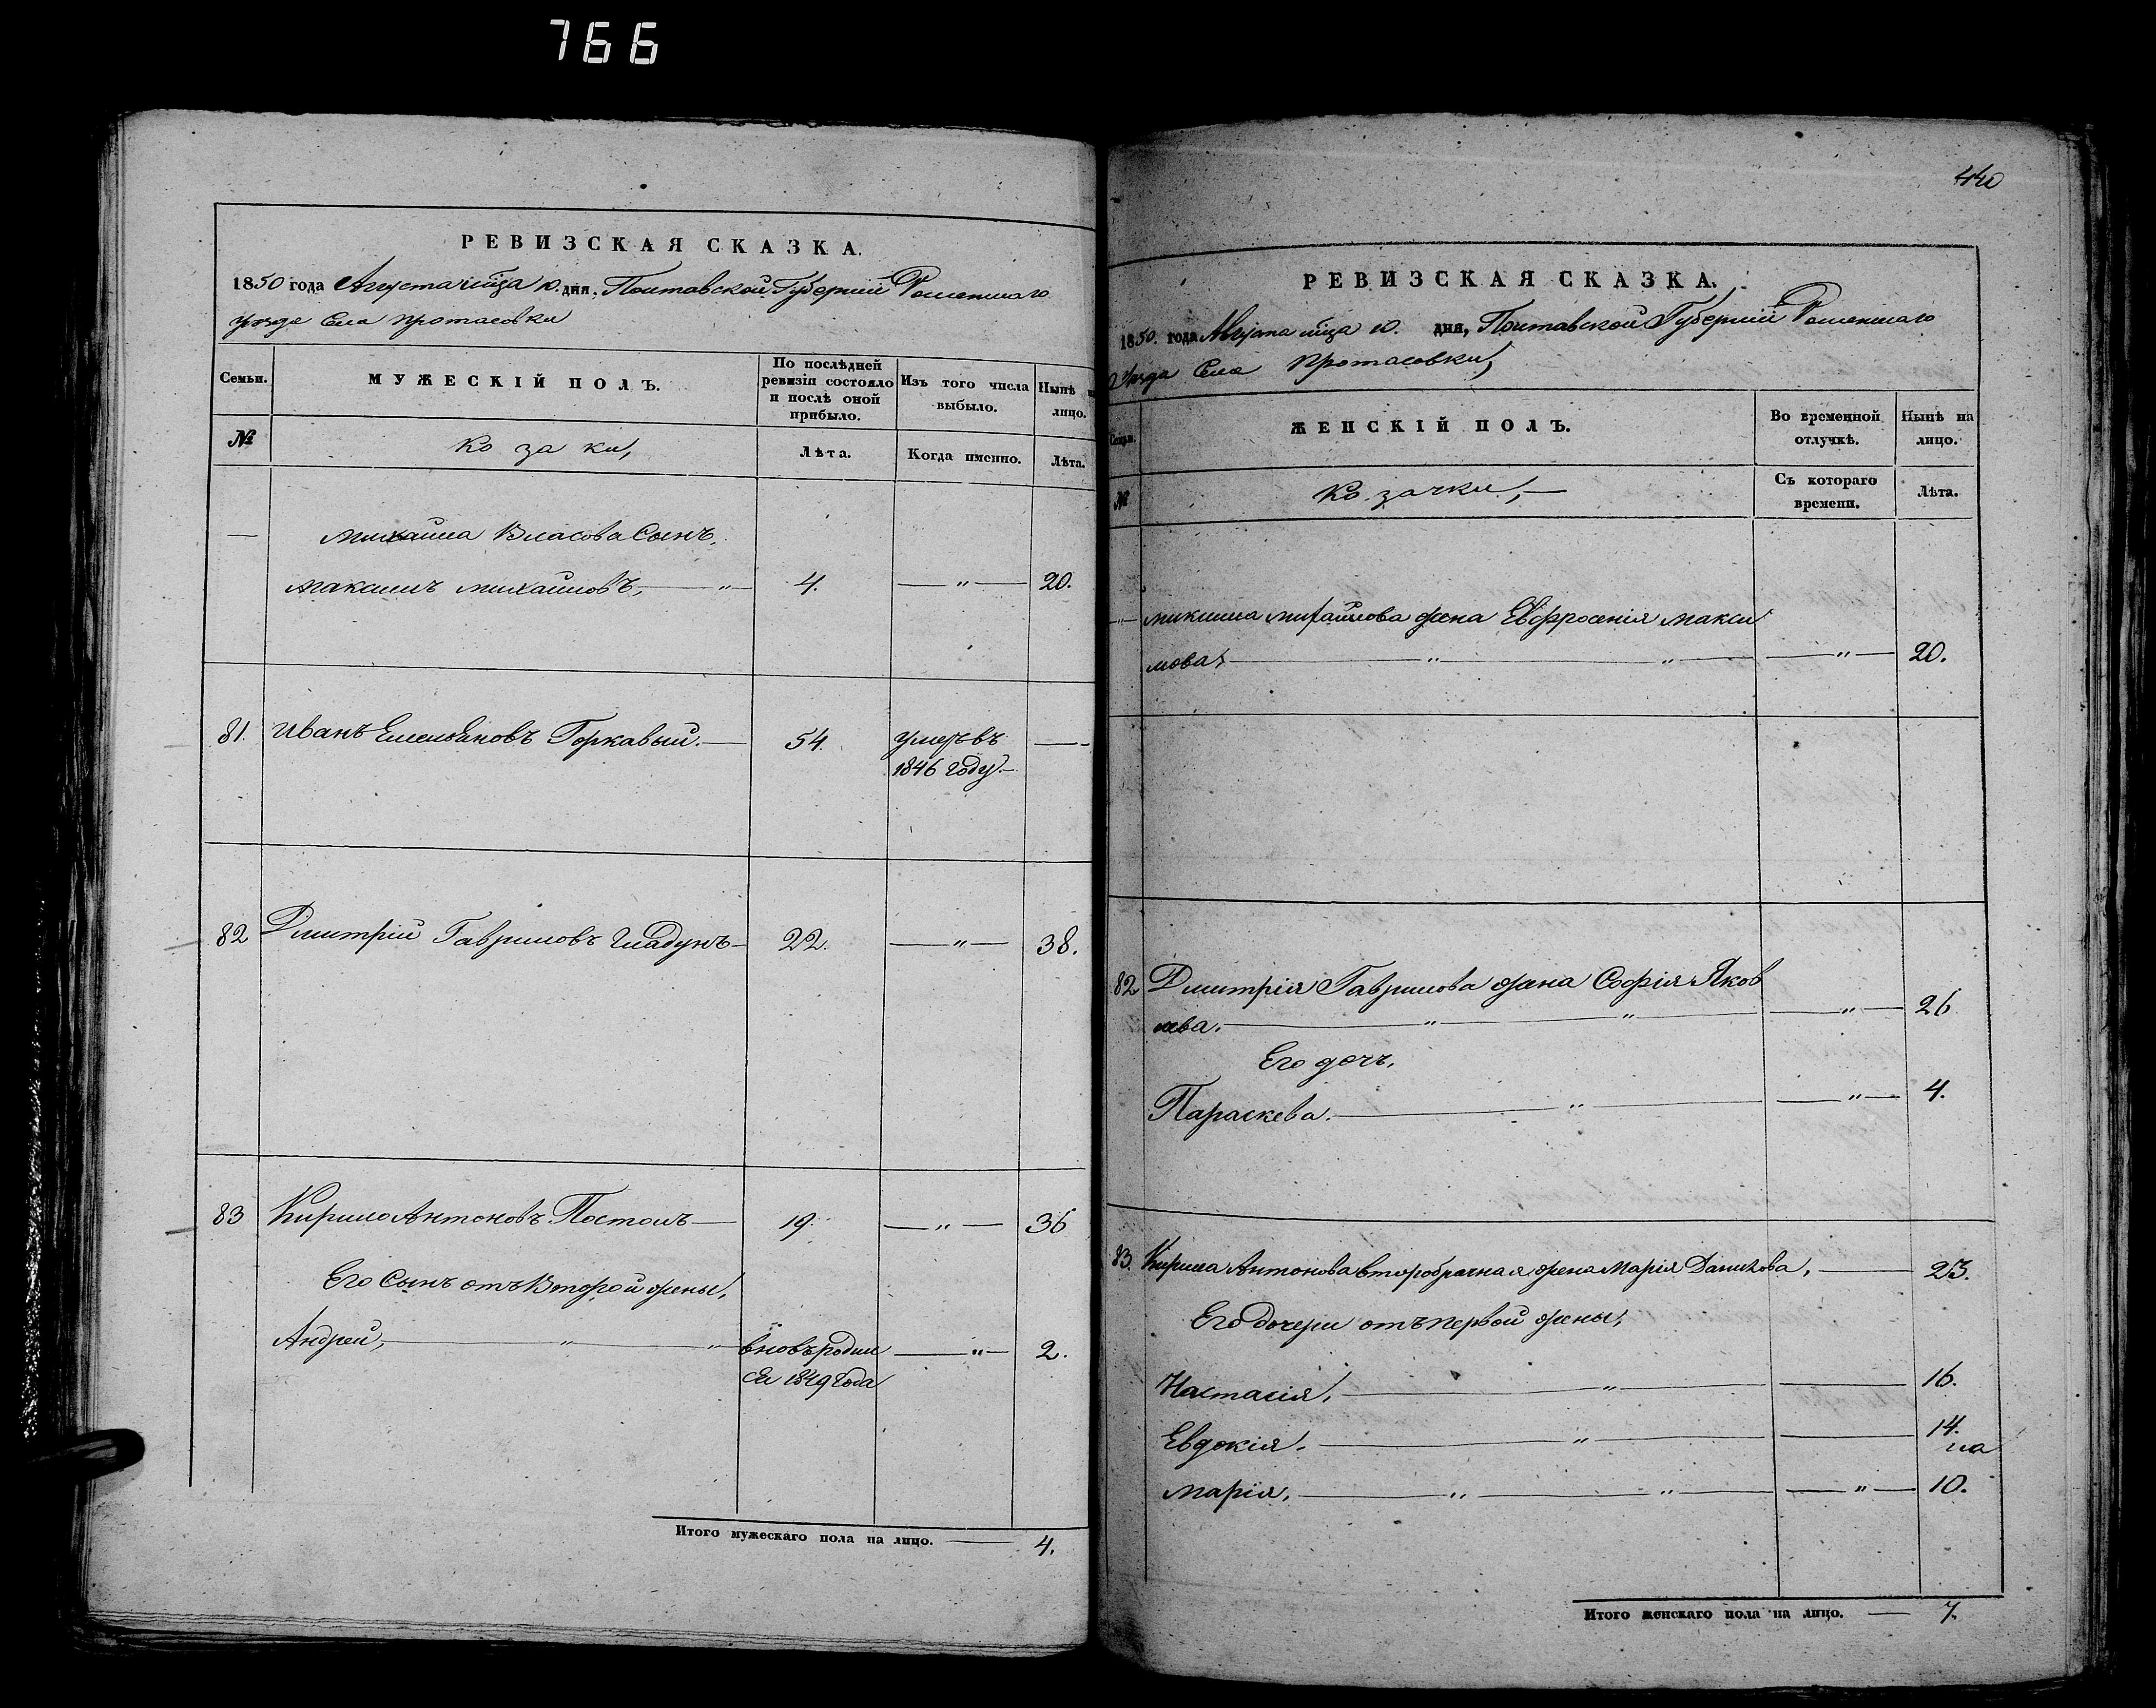 766
РЕВИЗСКАЯ СКАЗКА.
1850 года Августа мѣсяца 10. дня, Полтавской Губерніи Роменскаго
уѣзда Села Протасовки
Семьи.
МУЖЕСКІЙ ПОЛЪ.
По послѣдней
ревизіи состояло
и послѣ оной
прибыло.
Изъ того числа
выбыло.
Нынѣ на
лицо.
№
Козаки,
Лѣта.
Когда именно.
Лѣта.
— Михайла Власова Сынъ,
Максимъ Михайловъ, — " — 4. — " — 20.
81. Иванъ Емельяновъ Горкавый. — 54. умеръ въ —
1846 году. —
82 Дмитрій Гавриловъ Гладунъ — 22. — " — 38.
83 Кирило Антоновъ Постолъ — 19. — " — 36
Его Сынъ отъ Второй жены,
Андрей, — " — " — вновь родил — " — 2.
ся 1849 года
Итого мужескаго пола на лицо. — 4.
440
РЕВИЗСКАЯ СКАЗКА.
1850. года Августа мѣсяца 10. дня, Полтавской Губерніи Роменскаго
Уѣзда Села Протасовки,
Семьи.
ЖЕНСКІЙ ПОЛЪ.
Во временной
отлучкѣ.
Нынѣ на
лицо.
№
Козачки, —
Съ котораго
времени.
Лѣта.
— " — Максима Михайлова жена Евфросенія Макси
мова, — " — " — — " — 20.
82 Дмитрія Гаврилова жена Софія Яков
лева. — " — " — — " — 26
Его дочь,
Параскева. — " — — " — 4.
83. Кирила Антонова второбрачная жена Марія Данилова, — 23.
Его дочери отъ первой жены,
Настасія, — " — — 16.
Евдокія. — " — — 14.
Марія, — " — " — — " — 10.
Итого женскаго пола на лицо. — 7.